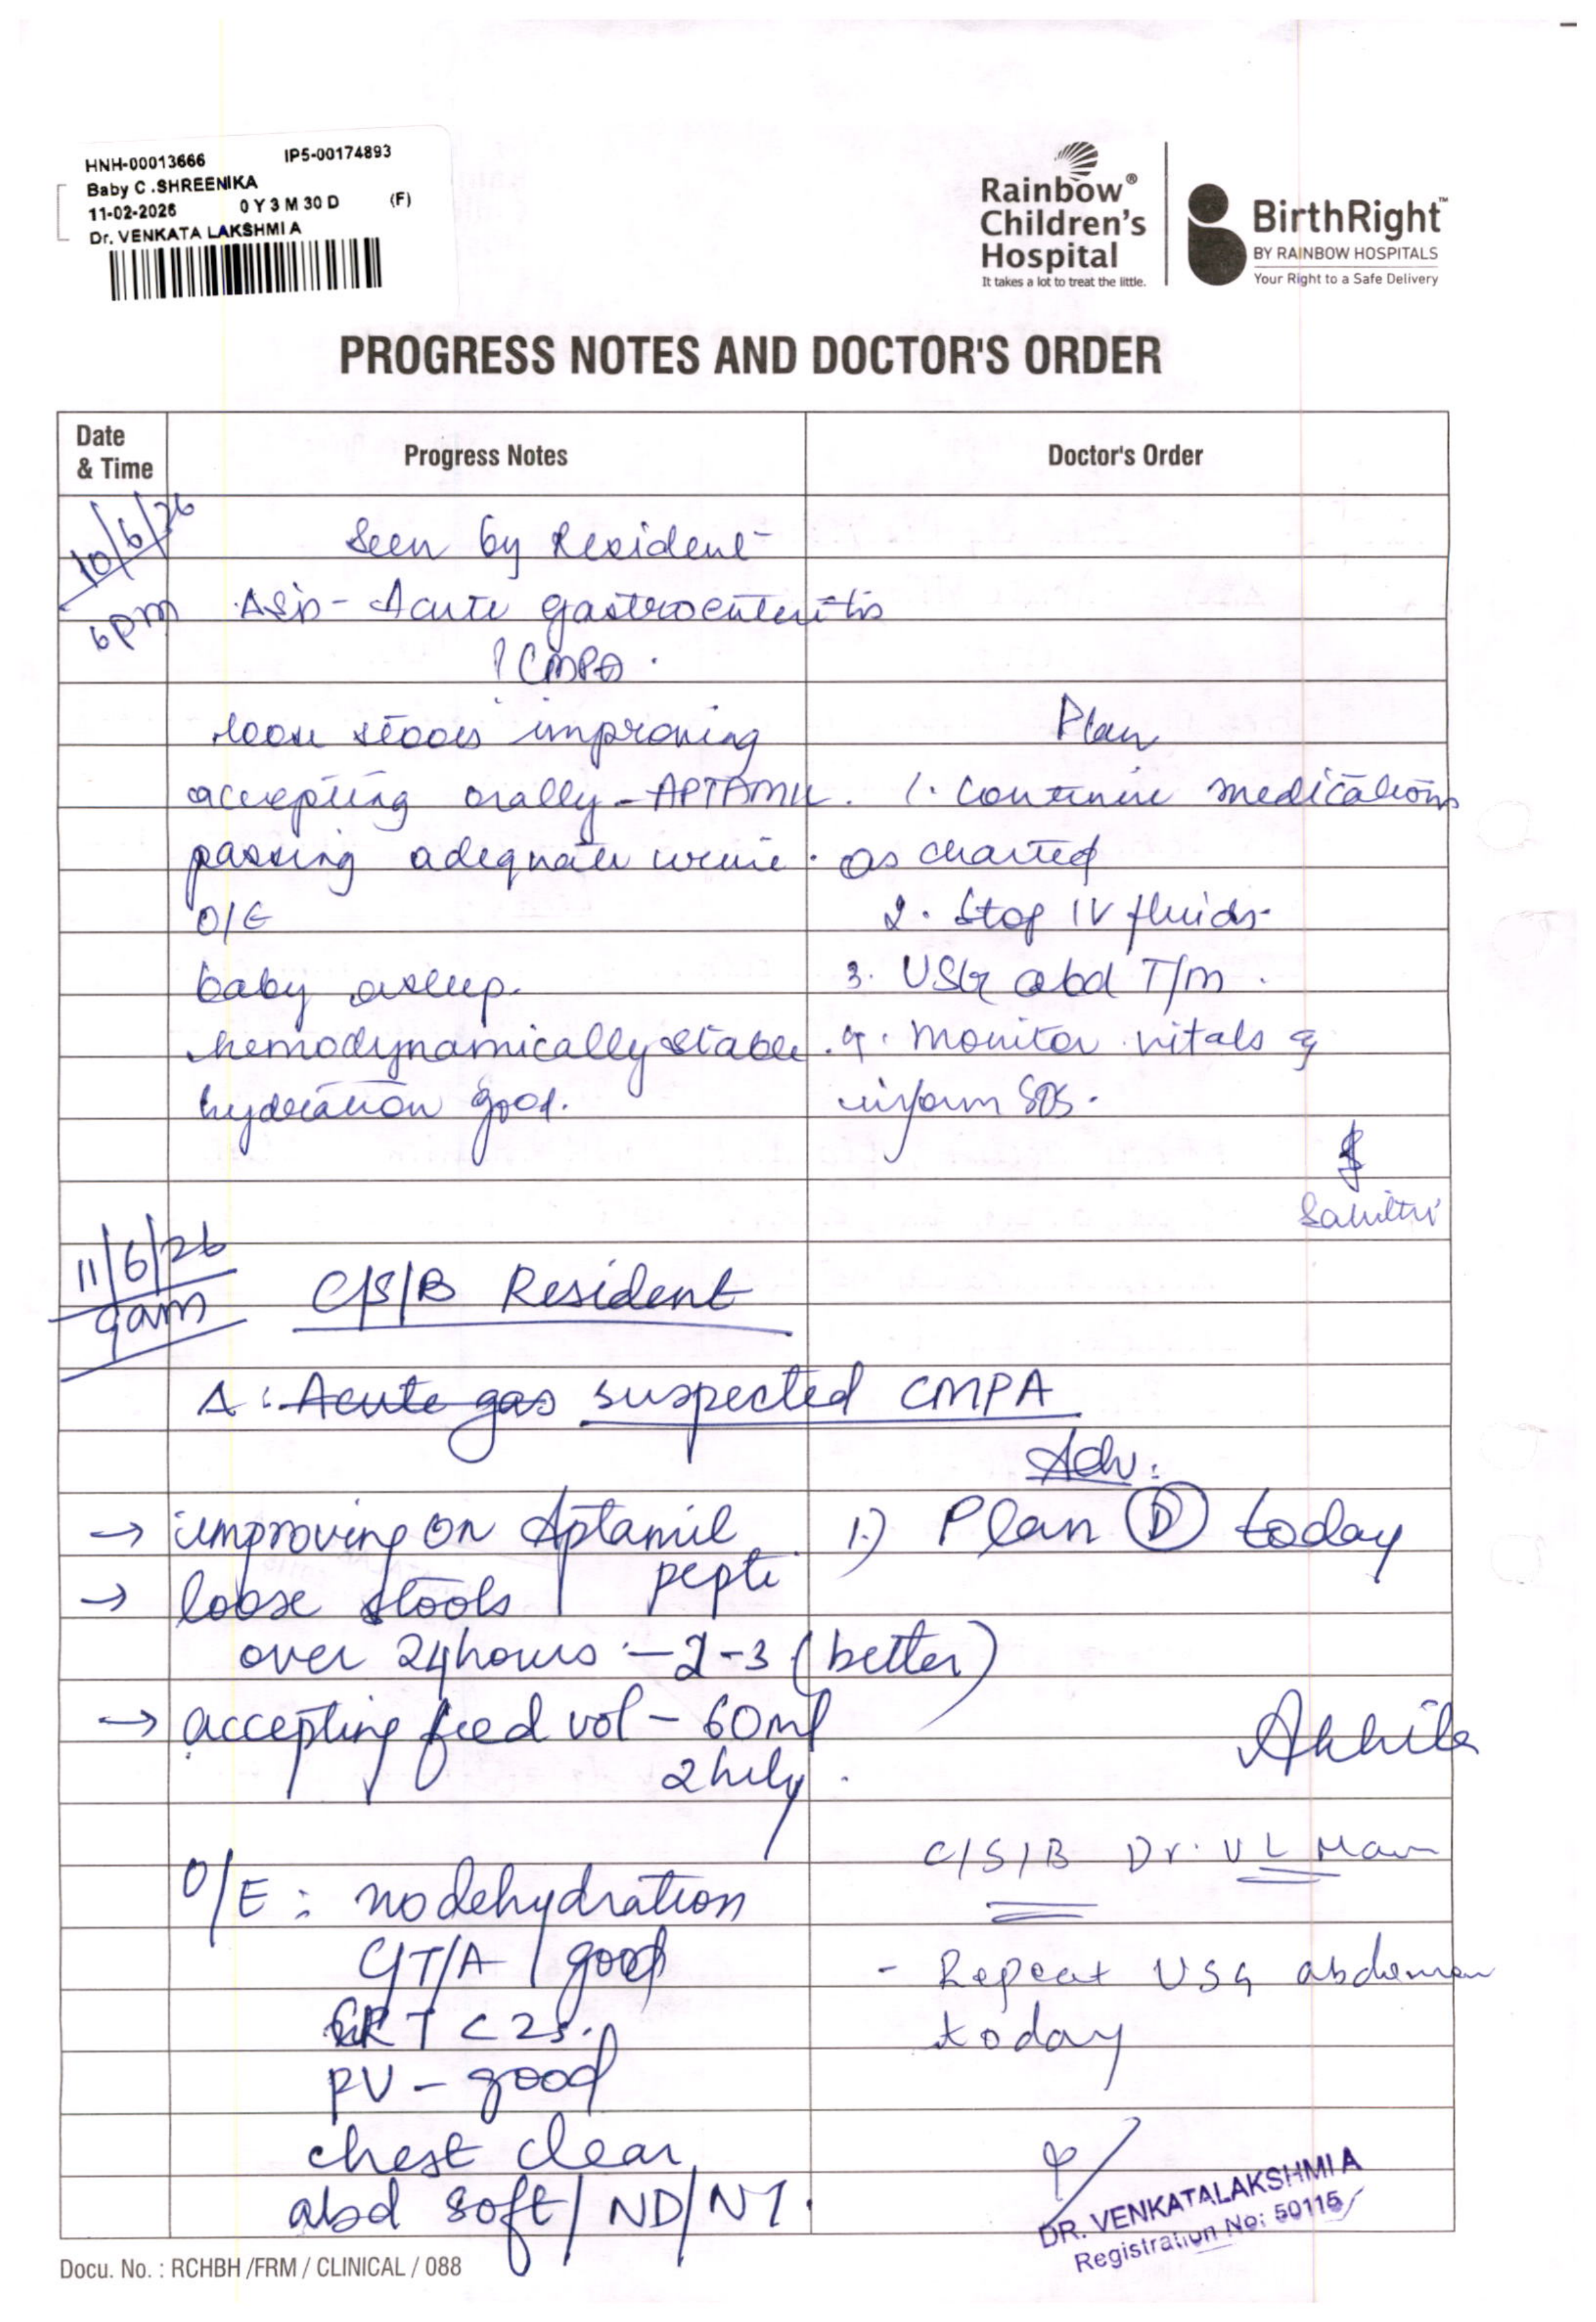 HNH-00013666 IP5-00174893
Baby C .SHREENIKA
11-02-2026 0 Y 3 M 30 D (F)
Dr. VENKATA LAKSHMI A
Rainbow®
Children's
Hospital
It takes a lot to treat the little.
BirthRight™
BY RAINBOW HOSPITALS
Your Right to a Safe Delivery
PROGRESS NOTES AND DOCTOR'S ORDER
Date & Time Progress Notes Doctor's Order
10/6/26
6pm
Seen by Resident
Acute gastroenteritis
? CMPA.
loose stools improving
accepting orally - APTAMIL.
passing adequate urine.
O/E
baby asleep.
hemodynamically stable.
hydration good.
Plan
1. Continue medications
as charted
2. Stop IV fluids.
3. USG abd T/m.
4. Monitor vitals &
inform SOS.
11/6/26
9am
C/S/B Resident
Δ : Acute gas suspected CMPA
→ improving on Aptamil
pepti
→ loose stools
over 24 hours :- 2-3 (better)
→ accepting feed vol - 60ml
2 hrly.
O/E : no dehydration
C/T/A / good
CRT < 2s.
PV - good
chest clear
abd soft / ND / NT.
Adv:
1.) Plan D today
Akhila
C/S/B Dr. V L Mam
- Repeat USG abdomen
today
DR. VENKATALAKSHMI A
Registration No: 50115
Docu. No. : RCHBH /FRM / CLINICAL / 088